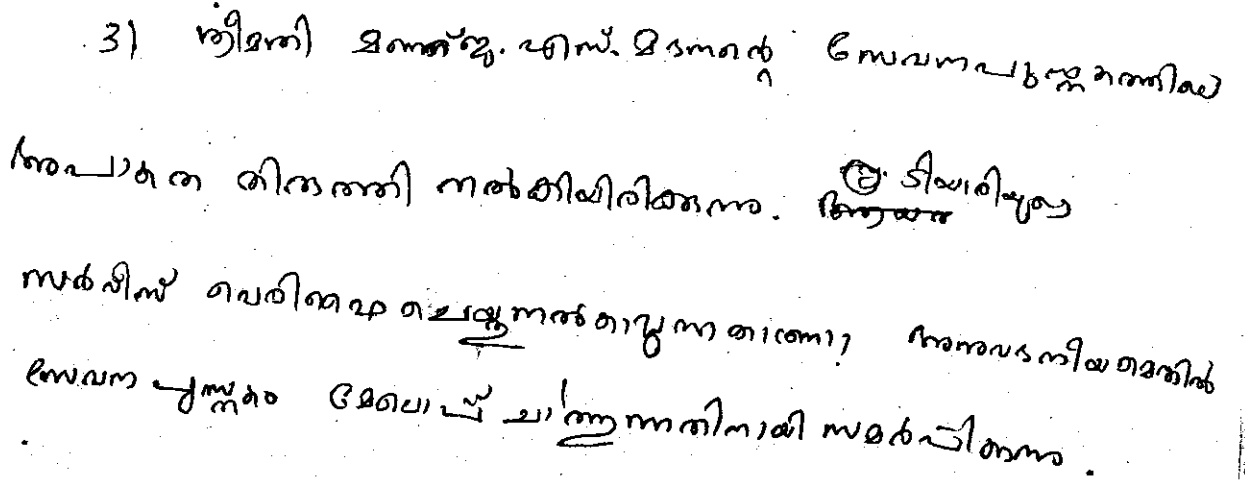 3) ശ്രീമതി മഞ്ജു. എസ്. മദനന്റെ സേവനപുസ്തകത്തിലെ
അപാകത തിരുത്തി നൽകിയിരിക്കുന്നു. ടിയാരിയുടെ
സർവീസ് വെരിഫൈ ചെയ്തുനൽകാവുന്നതാണോ? അനുവദനീയമെങ്കിൽ
സേവന പുസ്തകം മേലൊപ്പ് ചാർത്തുന്നതിനായി സമർപ്പിക്കുന്നു.